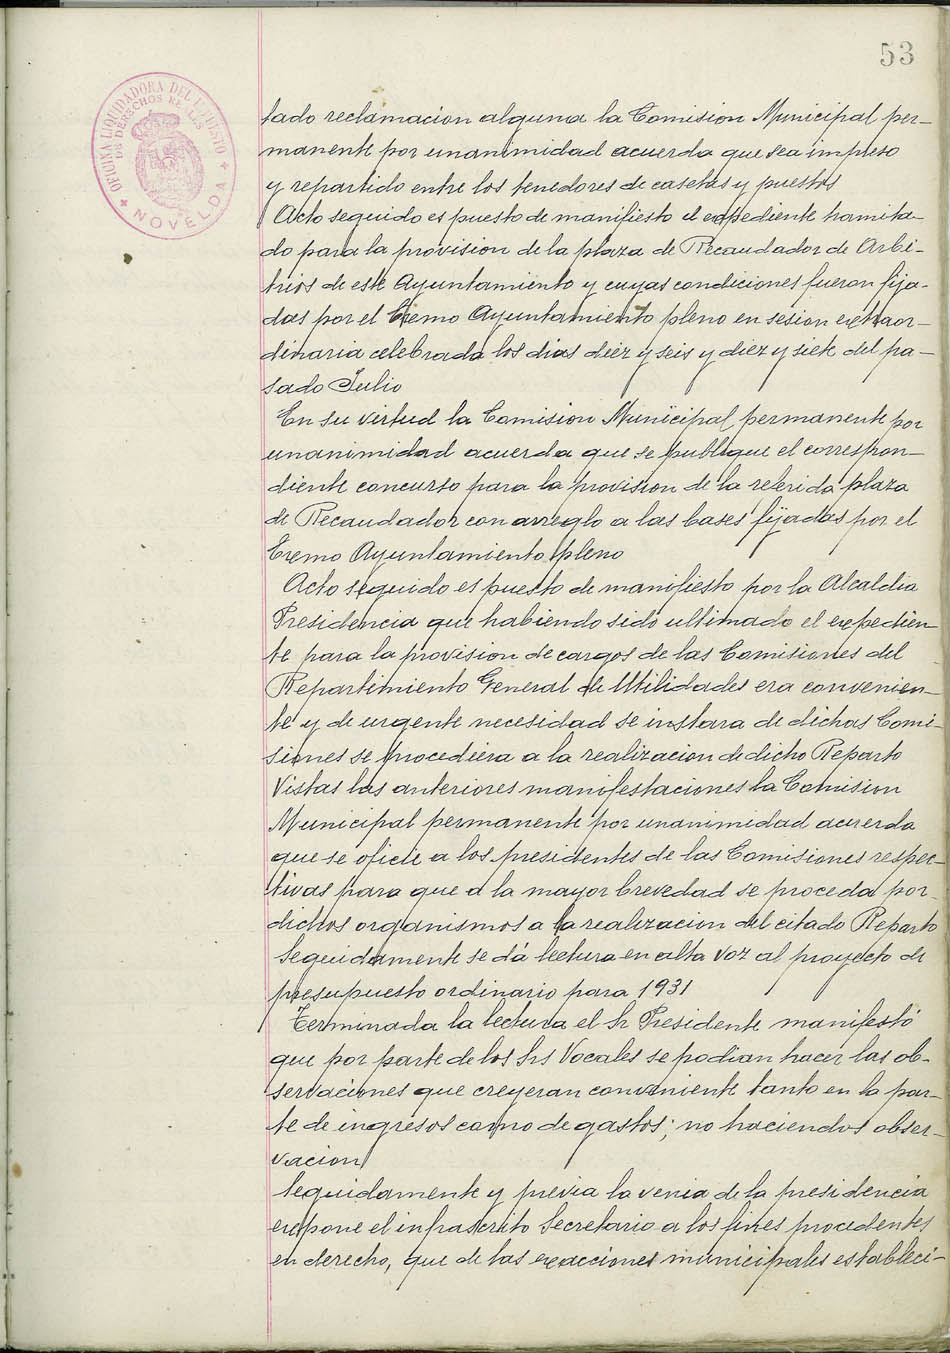 53
OFICINA LIQUIDADORA DEL IMPUESTO
DE DERECHOS REALES
NOVELDA
tado reclamacion alguna la Comision Municipal per-
manente por unanimidad acuerda que sea impreso
y repartido entre los tenedores de casetas y puestos
Acto seguido es puesto de manifiesto el expediente tramita-
do para la provision de la plaza de Recaudador de Arbi-
trios de este Ayuntamiento y cuyas condiciones fueron fija-
das por el Excmo Ayuntamiento pleno en sesion extraor-
dinaria celebrada los dias diez y seis y diez y siete del pa-
sado Julio
En su virtud la Comision Municipal permanente por
unanimidad acuerda que se publique el correspon-
diente concurso para la provision de la referida plaza
de Recaudador con arreglo a las bases fijadas por el
Excmo Ayuntamiento pleno
Acto seguido es puesto de manifiesto por la Alcaldia
Presidencia que habiendo sido ultimado el expedien-
te para la provision de cargos de las Comisiones del
Repartimiento General de Utilidades era convenien-
te y de urgente necesidad se instara de dichas Comi-
siones se procediera a la realizacion de dicho Reparto
Vistas las anteriores manifestaciones la Comision
Municipal permanente por unanimidad acuerda
que se oficie a los presidentes de las Comisiones respec-
tivas para que a la mayor brevedad se proceda por
dichos organismos a la realizacion del citado Reparto
Seguidamente se dá lectura en alta voz al proyecto de
presupuesto ordinario para 1931
Terminada la lectura el Sr Presidente manifestó
que por parte de los Srs Vocales se podian hacer las ob-
servaciones que creyeran conveniente tanto en la par-
te de ingresos como de gastos; no haciendos obser-
vacion
Seguidamente y previa la venia de la presidencia
expone el infrascrito Secretario a los fines procedentes
en derecho, que de las exacciones municipales estableci-